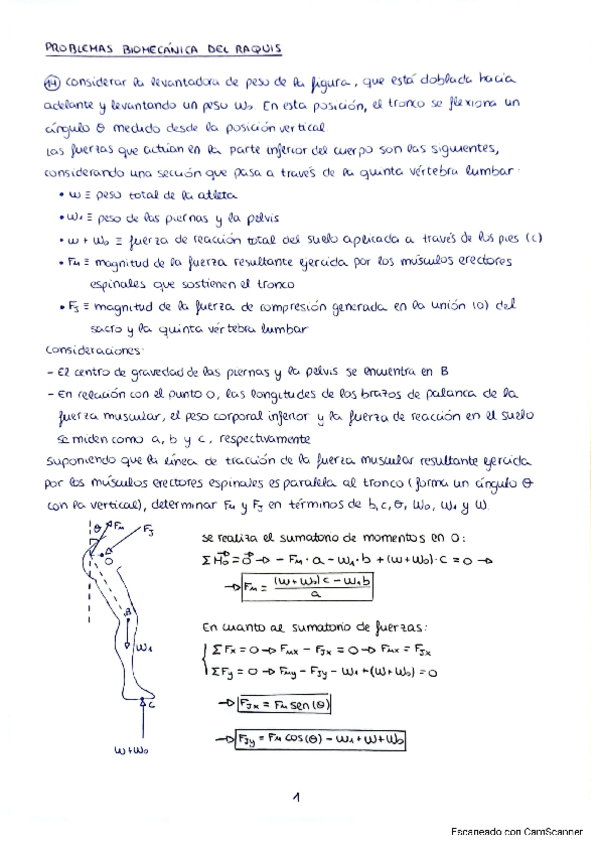 PROBLEMAS BIOMECÁNICA DEL RAQUIS
14 Considerar la levantadora de peso de la figura, que está doblada hacia
adelante y levantando un peso W0. En esta posición, el tronco se flexiona un
ángulo θ medido desde la posición vertical
Las fuerzas que actúan en la parte inferior del cuerpo son las siguientes,
considerando una sección que pasa a través de la quinta vértebra lumbar:
• W ≡ peso total de la atleta
• W1 ≡ peso de las piernas y la pelvis
• W + W0 ≡ fuerza de reacción total del suelo aplicada a través de los pies (C)
• FM ≡ magnitud de la fuerza resultante ejercida por los músculos erectores
espinales que sostienen el tronco
• FJ ≡ magnitud de la fuerza de compresión generada en la unión (O) del
sacro y la quinta vértebra lumbar
Consideraciones:
- El centro de gravedad de las piernas y la pelvis se encuentra en B
- En relación con el punto O, las longitudes de los brazos de palanca de la
fuerza muscular, el peso corporal inferior y la fuerza de reacción en el suelo
se miden como a, b y c, respectivamente
Suponiendo que la línea de tracción de la fuerza muscular resultante ejercida
por los músculos erectores espinales es paralela al tronco (forma un ángulo θ
con la vertical), determinar FM y FJ en términos de b, c, θ, W0, W1 y W.
θ FM FJ
O
B
W1
C
W+W0
Se realiza el sumatorio de momentos en O:
ΣM0 = 0 → - FM · a - W1 · b + (W+W0) · c = 0 →
→ FM = (W+W0)c - W1b / a
En cuanto al sumatorio de fuerzas:
ΣFx = 0 → FMx - FJx = 0 → FMx = FJx
ΣFy = 0 → FMy - FJy - W1 + (W+W0) = 0
→ FJx = FM sen(θ)
→ FJy = FM cos(θ) - W1 + W + W0
1
Escaneado con CamScanner